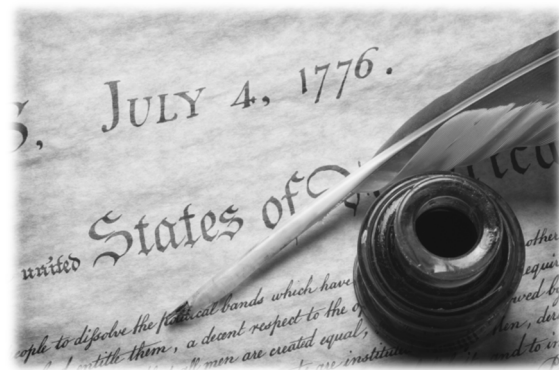 S, JULY 4, 1776.
united States of
eople to dissolve the political bands which have
entitle them, a decent respect to the
all men are created equal,
are institu